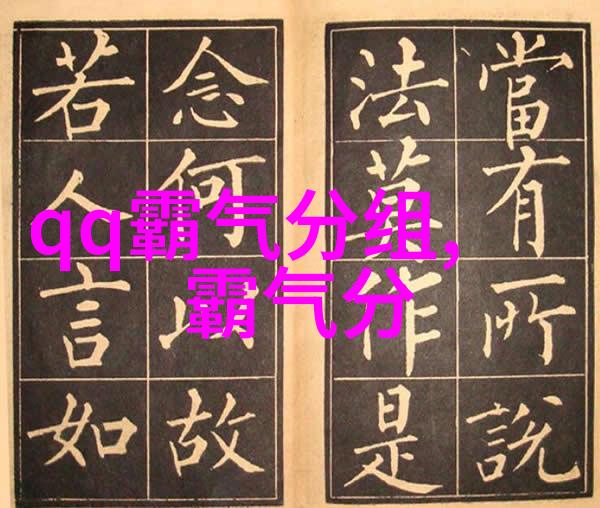 當有所說
法莫作是
念何以故
若人言如
qq霸气分组,
霸气分